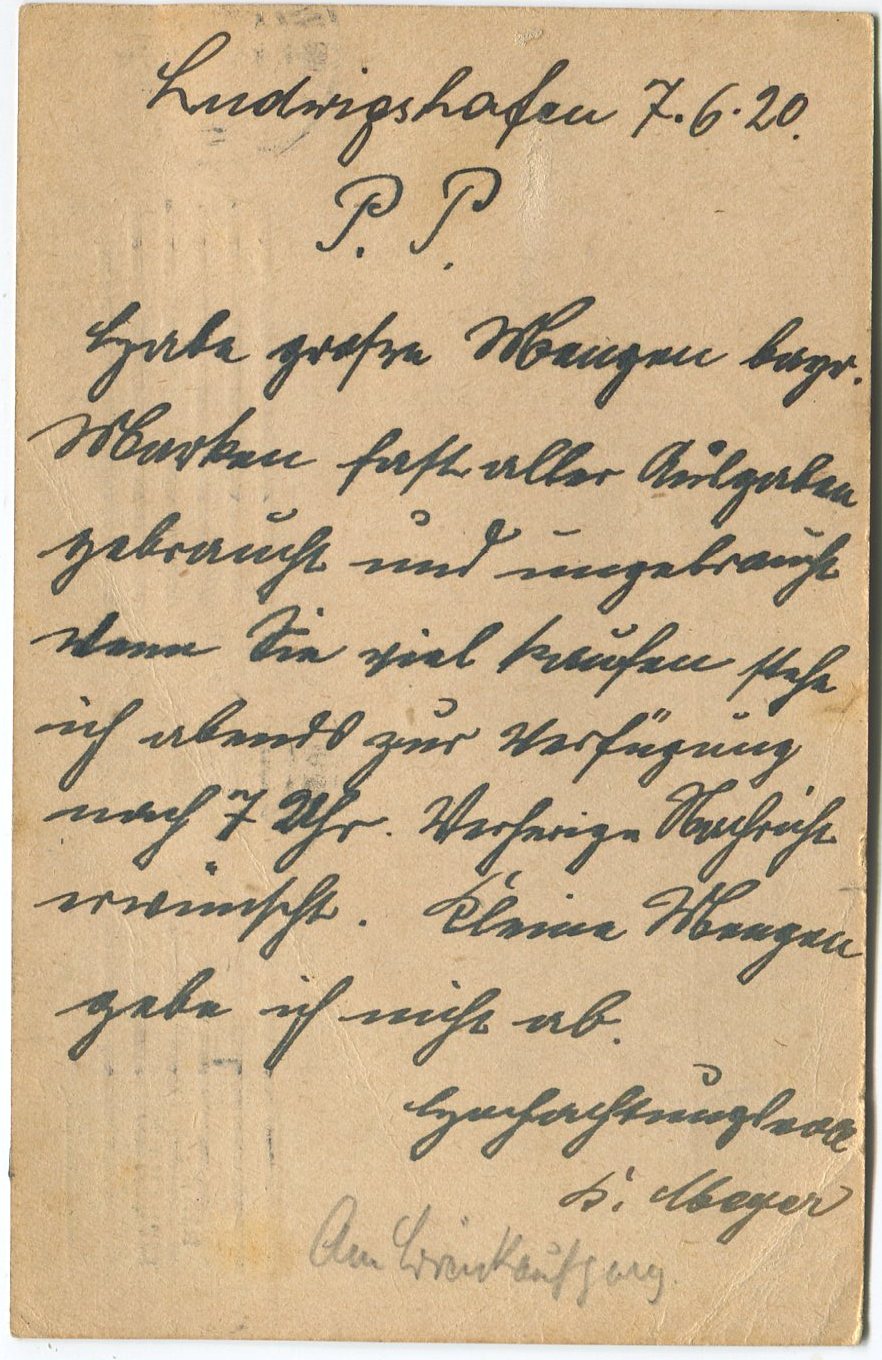 Ludwigshafen 7.6.20.
P. P.
Habe große Mengen bayr.
Marken fast aller Ausgaben
gebraucht und ungebraucht
wenn Sie viel kaufen stehe
ich abends zur Verfügung
nach 7 Uhr. Vorherige Nachricht
erwünscht. Kleine Mengen
gebe ich nicht ab.
Hochachtungsvoll
K. Meyer
Am